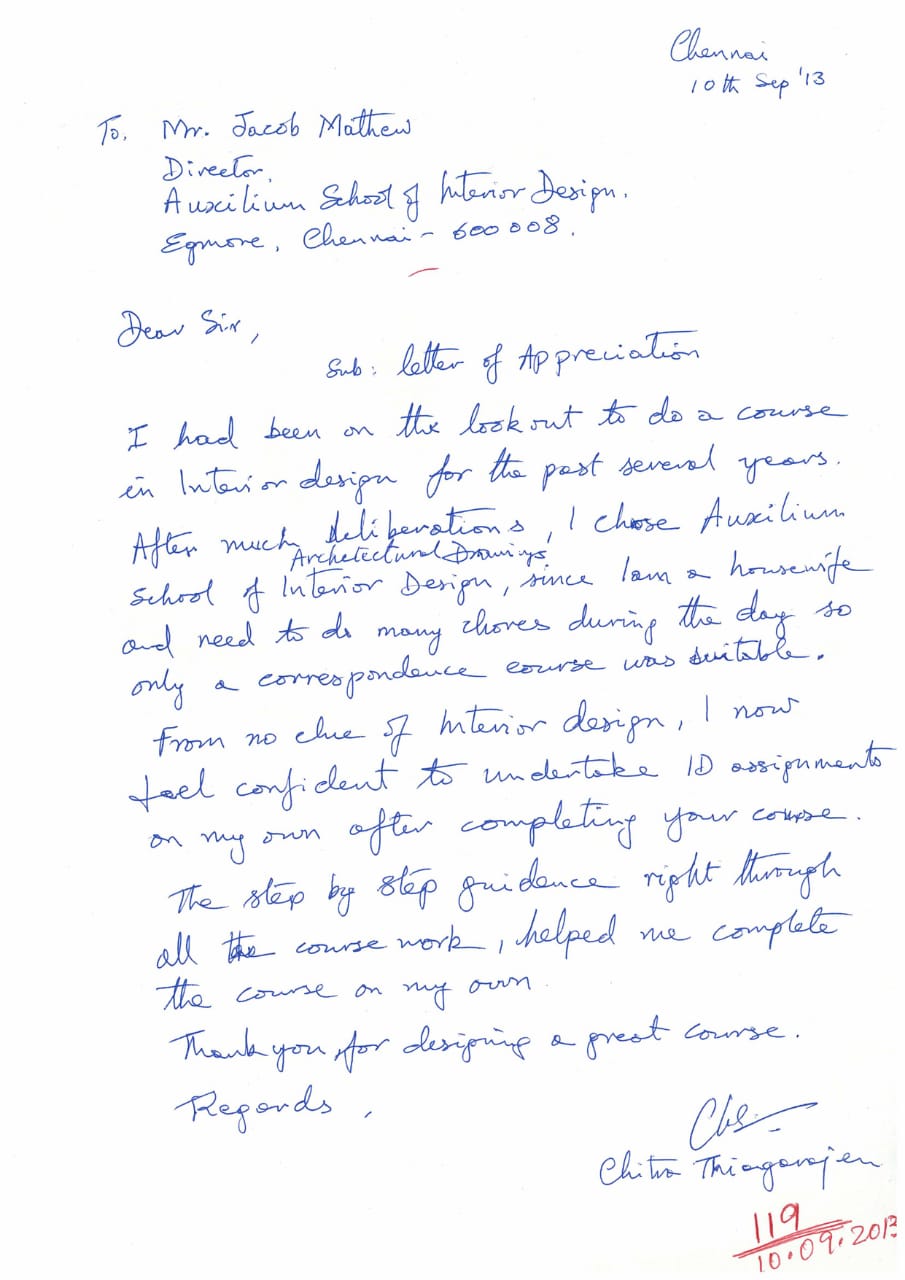 Chennai
10th Sep '13
To, Mr. Jacob Mathew
Director,
Auxilium School of Interior Design.
Egmore, Chennai - 600 008.
Dear Sir,
Sub: letter of Appreciation
I had been on the lookout to do a course
in Interior design for the past several years.
After much deliberations, I chose Auxilium
Archetectural Drawings
School of Interior Design, since I am a housewife
and need to do many chores during the day so
only a correspondence course was suitable.
From no clue of Interior design, I now
feel confident to undertake ID assignments
on my own after completing your course.
The step by step guidence right through
all the course work, helped me complete
the course on my own
Thank you, for designing a great course.
Regards,
Chitra Thiagarajen
119
10.09.2013